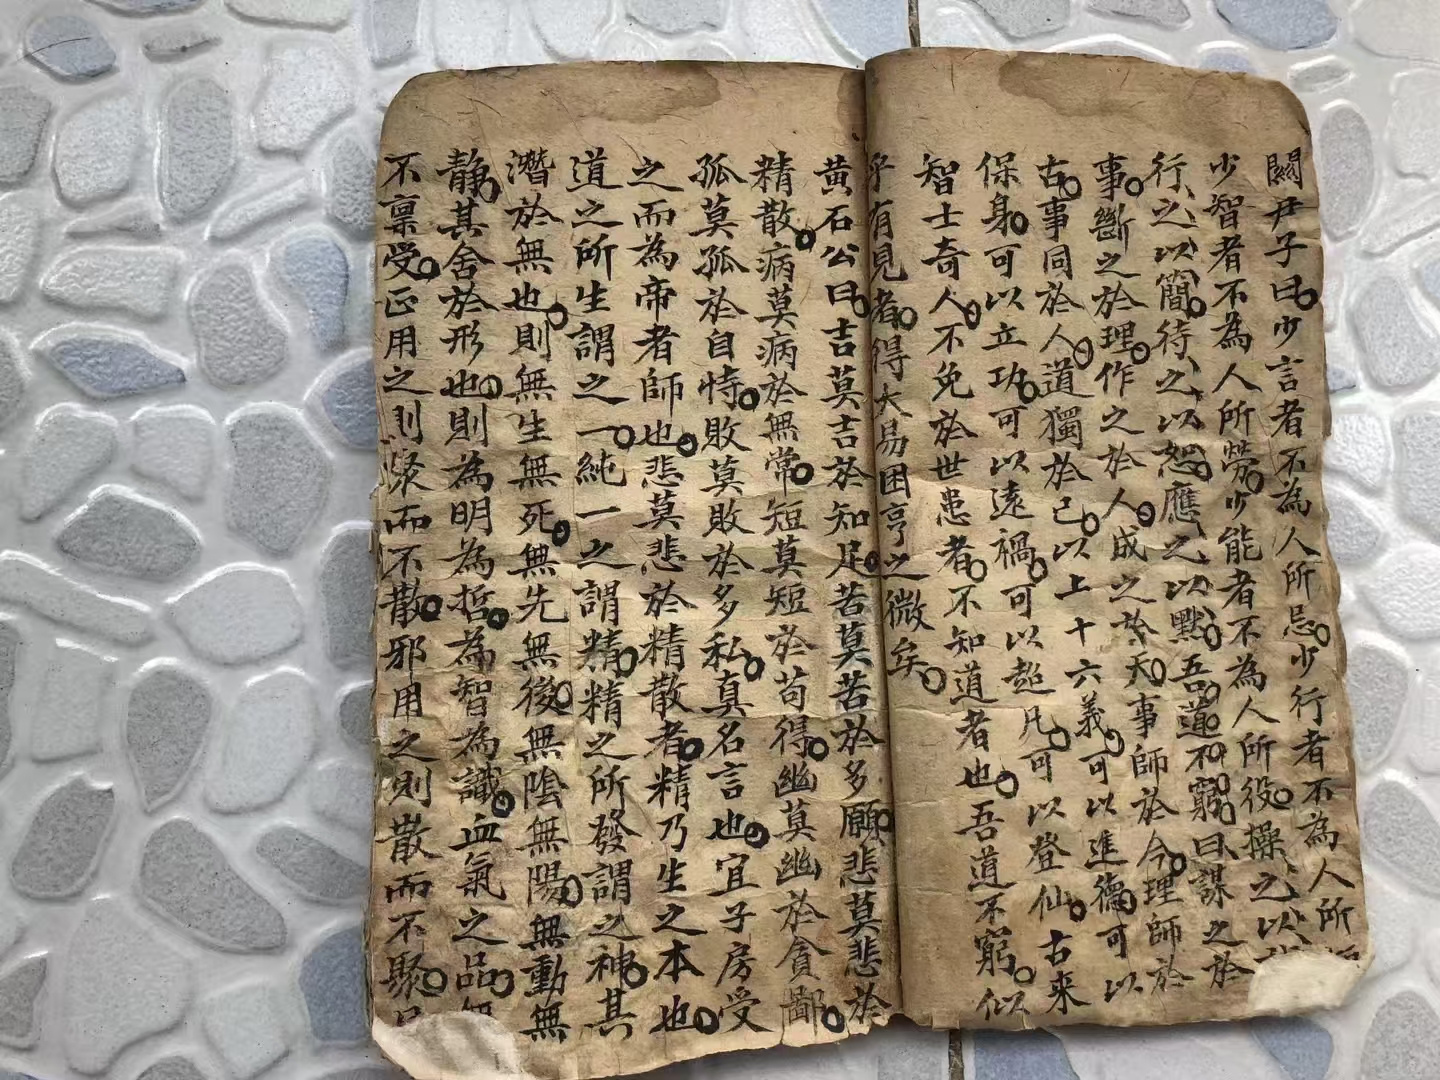 關尹子曰少言者不為人所忌少行者不為人所
少智者不為人所勞少能者不為人所役操之以
行之以簡待之以恕應之以默吾道不窮曰謀之於
事斷之於理作之於人成之於天事師於今理師於
古事同於人道獨於己以上十六義可以進德可以
保身可以立功可以遠禍可以超凡可以登仙古来
智士奇人不免於世患者不知道者也吾道不窮似
乎有見者得大易困亨之微矣
黄石公曰吉莫吉於知足苦莫苦於多願悲莫悲於
精散病莫病於無常短莫短於苟得幽莫幽於貪鄙
孤莫孤於自恃敗莫敗於多私真名言也宜子房受
之而為帝者師也悲莫悲於精散者精乃生之本也
道之所生謂之一純一之謂精精之所發謂之神其
潛於無也則無生無死無先無後無陰無陽無動無
静其舍於形也則為明為哲為智為識血氣之品無
不禀受正用之則聚而不散邪用之則散而不聚